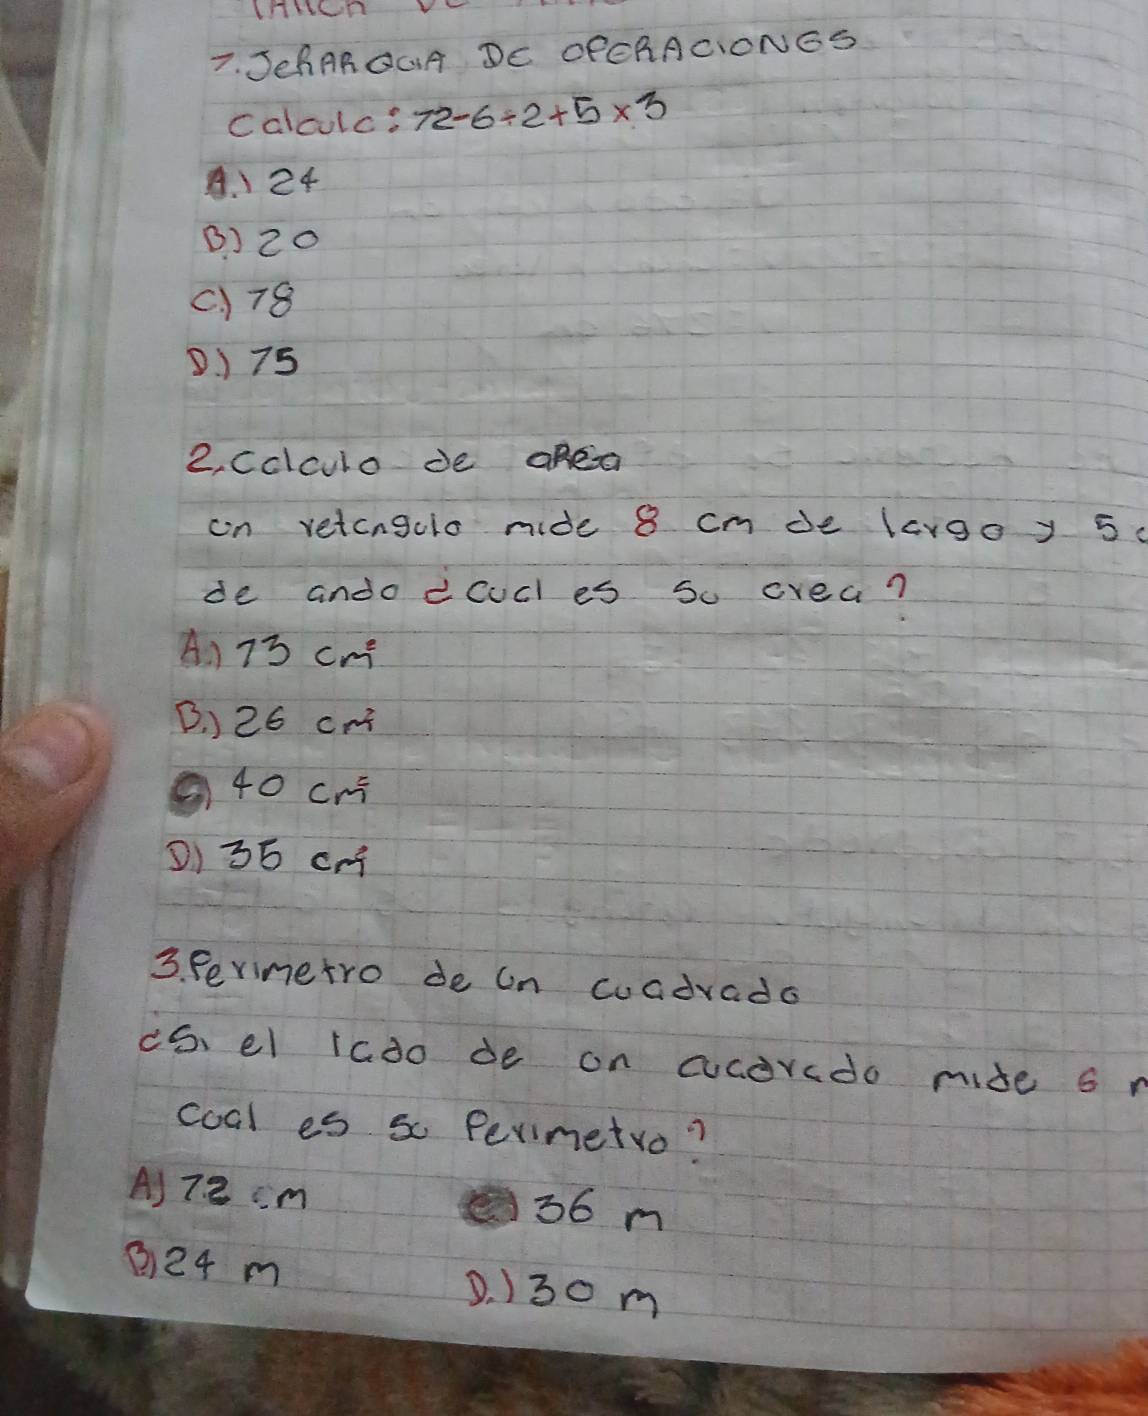 7. JeRARQUIA DE OPERACIONES
Calculc: 72-6÷2+5×3
A.) 24
B.) 20
C.) 78
D.) 75
2. Calculo de aRea
un retcngulo mide 8 cm de largo y 5 c
de ando ¿cucl es su crea?
A.) 73 cm²
B.) 26 cm²
C) 40 cm²
D.) 35 cm²
3. Perimetro de un cuadrado
¿Si el lcdo de un cucdrcdo mide 6 m
cual es su Perimetro?
A) 72 cm
C) 36 m
B) 24 m
D.) 30 m